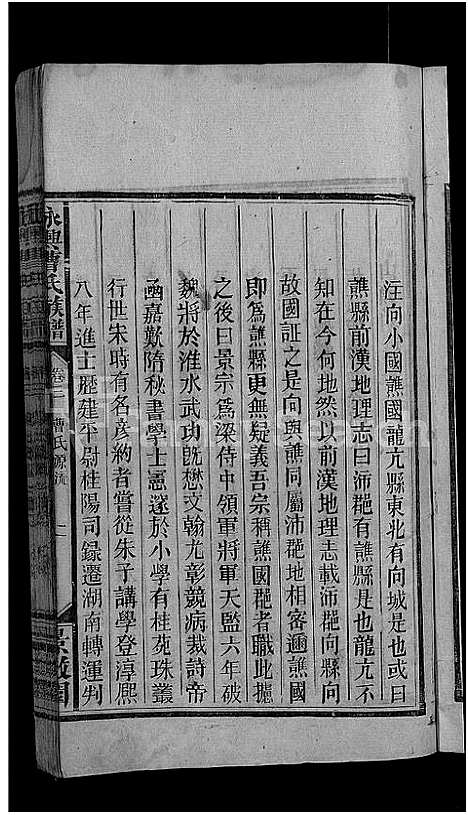 注向小國譙國龍亢縣東北有向城是也或曰
譙縣前漢地理志曰沛郡有譙縣是也龍亢不
知在今何地然以前漢地理志載沛郡向縣向
故國証之是向與譙同屬沛郡地相密邇譙國
即爲譙縣更無疑義吾宗稱譙國郡者職此據
之後曰景宗爲梁侍中領軍將軍天監六年破
魏將於淮水武功既懋文翰尤彰競病裁詩帝
凾嘉歎隋秋書學士憲邃於小學有桂苑珠叢
行世宋時有名彥納者嘗從朱子講學登淳熙
八年進士歷建平尉桂陽司録遷湖南轉運判
永興曹氏族譜
卷二
曹氏源流